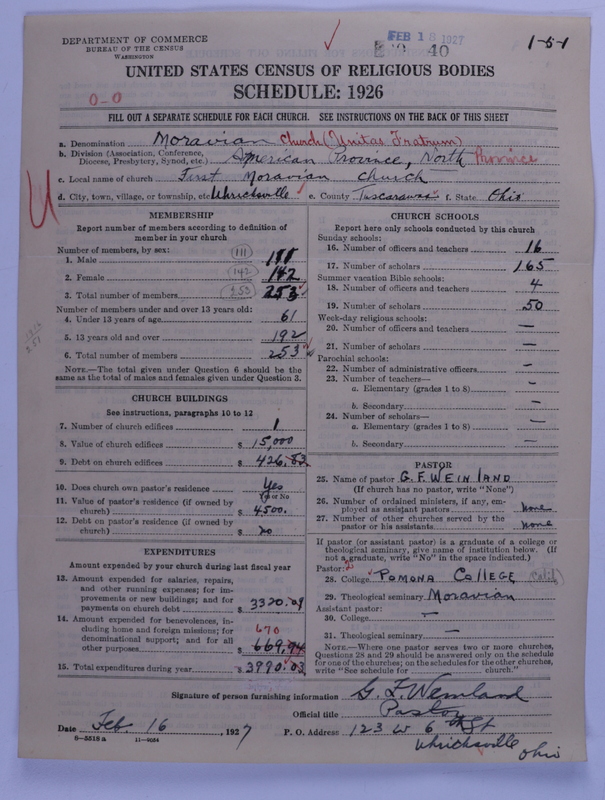 DEPARTMENT OF COMMERCE
BUREAU OF THE CENSUS
WASHINGTON
FEB 18 1927
40
1-5-1
UNITED STATES CENSUS OF RELIGIOUS BODIES
SCHEDULE: 1926
0-0
FILL OUT A SEPARATE SCHEDULE FOR EACH CHURCH. SEE INSTRUCTIONS ON THE BACK OF THIS SHEET
a. Denomination Moravian Church (Unitas Fratrum)
b. Division (Association, Conference, Diocese, Presbytery, Synod, etc.) American Province, North Province
c. Local name of church First Moravian Church
d. City, town, village, or township, etc. Uhrichsville e. County Tuscarawas f. State Ohio
MEMBERSHIP
Report number of members according to definition of
member in your church
Number of members, by sex:
1. Male (111) 111
2. Female (142) 142
3. Total number of members (253) 253
Number of members under and over 13 years old:
4. Under 13 years of age 61
5. 13 years old and over 192
6. Total number of members 253
NOTE.—The total given under Question 6 should be
same as the total of males and females given under Question 3.
CHURCH BUILDINGS
See instructions, paragraphs 10 to 12
7. Number of church edifices 1
8. Value of church edifices $ 15,000
9. Debt on church edifices $ 426.83
10. Does church own pastor's residence Yes
Yes or No
11. Value of pastor's residence (if owned by
church) $ 4500.
12. Debt on pastor's residence (if owned by
church) $ No
EXPENDITURES
Amount expended by your church during last fiscal year
13. Amount expended for salaries, repairs,
and other running expenses; for im-
provements or new buildings; and for
payments on church debt $ 3320.09
14. Amount expended for benevolences, in-
cluding home and foreign missions; for
denominational support; and for all
other purposes $ 669.94
670
15. Total expenditures during year $ 3990.03
CHURCH SCHOOLS
Report here only schools conducted by this church
Sunday schools:
16. Number of officers and teachers 16
17. Number of scholars 165
Summer vacation Bible schools:
18. Number of officers and teachers 4
19. Number of scholars 50
Week-day religious schools:
20. Number of officers and teachers —
21. Number of scholars —
Parochial schools:
22. Number of administrative officers —
23. Number of teachers—
a. Elementary (grades 1 to 8) —
b. Secondary —
24. Number of scholars—
a. Elementary (grades 1 to 8) —
b. Secondary —
PASTOR
25. Name of pastor G. F. Weinland
(If church has no pastor, write "None")
26. Number of ordained ministers, if any, em-
ployed as assistant pastors none
27. Number of other churches served by the
pastor or his assistants none
If pastor (or assistant pastor) is a graduate of a college or
theological seminary, give name of institution below. (If
not a graduate, write "No" in the space indicated.)
Pastor: 2
28. College Pomona College (Calif)
29. Theological seminary Moravian
Assistant pastor:
30. College —
31. Theological seminary —
NOTE.—Where one pastor serves two or more churches,
Questions 28 and 29 should be answered only on the schedule
for one of the churches; on the schedules for the other churches,
write "See schedule for church."
Signature of person furnishing information G. F. Weinland
Official title Pastor
Date Feb. 16, 1927 P. O. Address 123 W 6th St
Uhrichsville Ohio
8-5518 a 11-9034